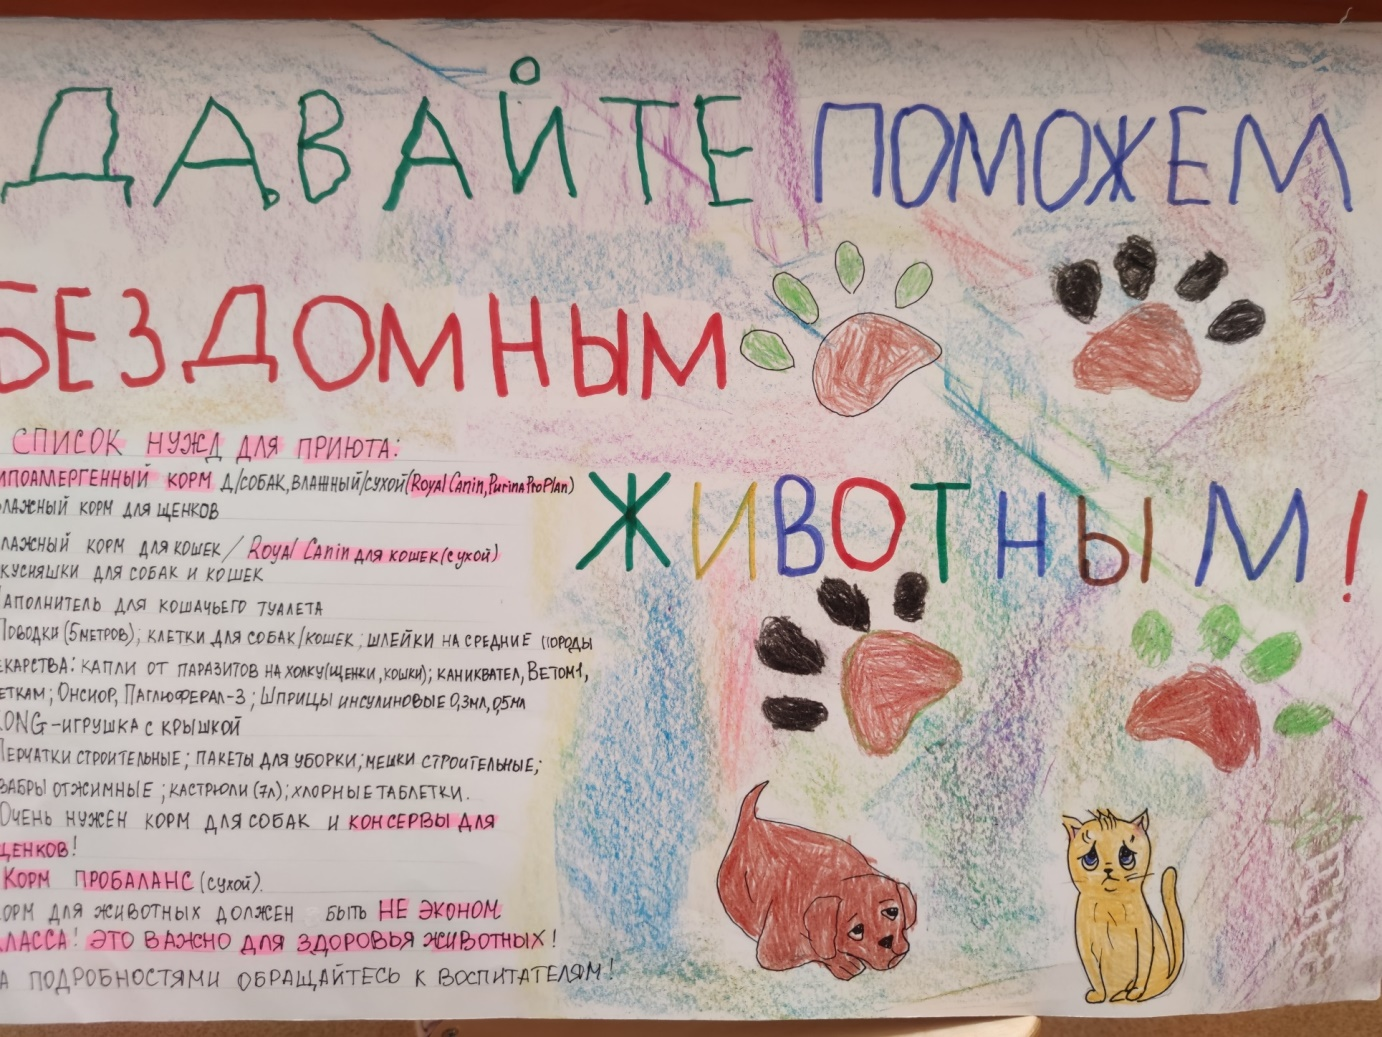 ДАВАЙТЕ ПОМОЖЕМ
БЕЗДОМНЫМ
ЖИВОТНЫМ!
СПИСОК НУЖД ДЛЯ ПРИЮТА:
ИПОАЛЛЕРГЕННЫЙ КОРМ Д/СОБАК, ВЛАЖНЫЙ/СУХОЙ (Royal Canin, Purina ProPlan)
ЛАЖНЫЙ КОРМ ДЛЯ ЩЕНКОВ
ЛАЖНЫЙ КОРМ ДЛЯ КОШЕК / Royal Canin ДЛЯ КОШЕК (СУХОЙ)
КУСНЯШКИ ДЛЯ СОБАК И КОШЕК
АПОЛНИТЕЛЬ ДЛЯ КОШАЧЬЕГО ТУАЛЕТА
ПОВОДКИ (5 МЕТРОВ); КЛЕТКИ ДЛЯ СОБАК/КОШЕК; ШЛЕЙКИ НА СРЕДНИЕ ПОРОДЫ
ЕКАРСТВА: КАПЛИ ОТ ПАРАЗИТОВ НА ХОЛКУ (ЩЕНКИ, КОШКИ); КАНИКВАТЕЛ, ВЕТОМ 1,
ЕТКАМ; ОНСИОР, ПАГЛЮФЕРАЛ-3; ШПРИЦЫ ИНСУЛИНОВЫЕ 0,3МЛ, 0,5МЛ
KONG-ИГРУШКА С КРЫШКОЙ
ПЕРЧАТКИ СТРОИТЕЛЬНЫЕ; ПАКЕТЫ ДЛЯ УБОРКИ; МЕШКИ СТРОИТЕЛЬНЫЕ;
ВАБРЫ ОТЖИМНЫЕ; КАСТРЮЛИ (7Л); ХЛОРНЫЕ ТАБЛЕТКИ.
ОЧЕНЬ НУЖЕН КОРМ ДЛЯ СОБАК И КОНСЕРВЫ ДЛЯ
ЩЕНКОВ!
КОРМ ПРОБАЛАНС (СУХОЙ).
ОРМ ДЛЯ ЖИВОТНЫХ ДОЛЖЕН БЫТЬ НЕ ЭКОНОМ
КЛАССА! ЭТО ВАЖНО ДЛЯ ЗДОРОВЬЯ ЖИВОТНЫХ!
А ПОДРОБНОСТЯМИ ОБРАЩАЙТЕСЬ К ВОСПИТАТЕЛЯМ!